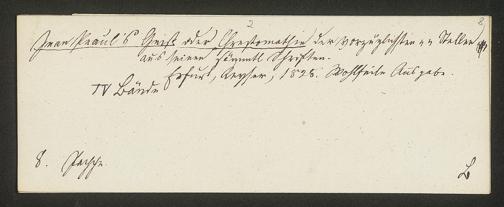 2
8
Jean Paul's Geist oder Chrestomathie der vorzüglichsten Stellen
aus seinen sämmtl Schriften.
IV Bände Erfurt, Keyser, 1826. Wohlfeile Ausgabe.
8.
L